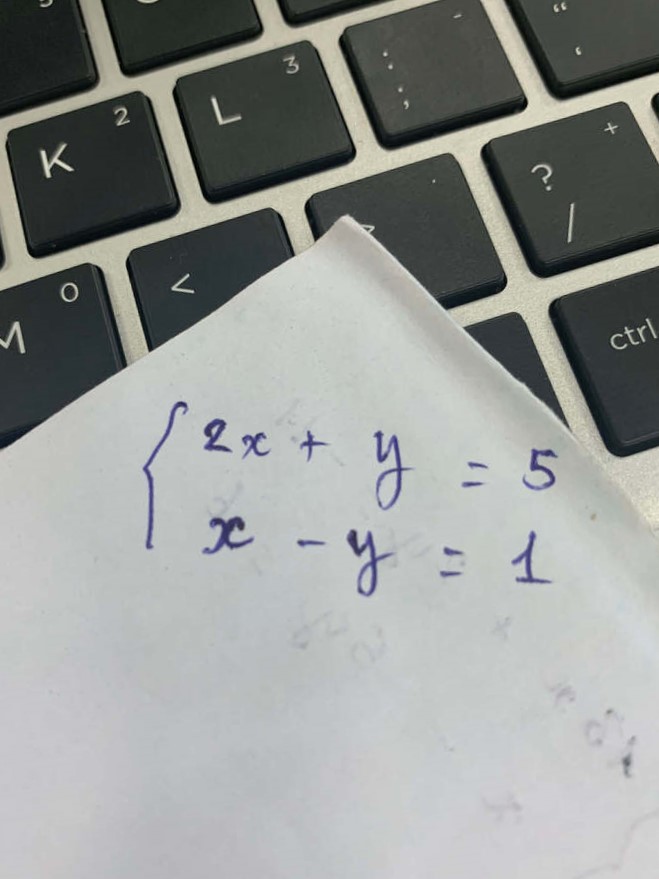 K 2
L 3
: ;
“ ‘
? / +
M 0
<
>
ctrl
2x + y = 5
x - y = 1